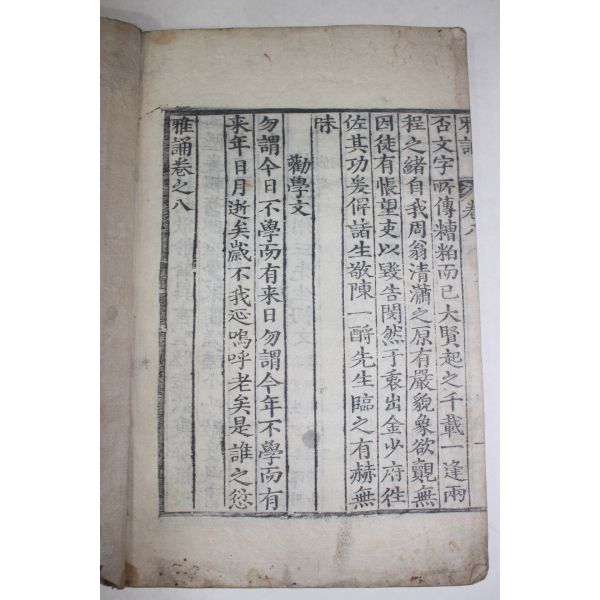 雅誦 卷八
否文字所傳糟粕而已大賢起之千載一逢兩
程之緒自我周翁清瀟之原有嚴貌象欲觀無
因徒有悵望吏以毀告閔然于衷出金少府徃
佐其功爰俾諸生敬陳一酹先生臨之有赫無
昧
勸學文
勿謂今日不學而有来日勿謂今年不學而有
来年日月逝矣歲不我延嗚呼老矣是誰之愆
雅誦卷之八